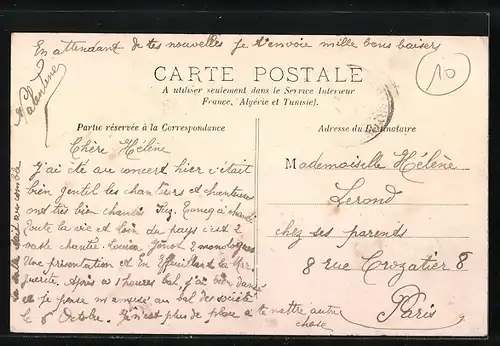 En attendant de tes nouvelles je t'envoie mille bons baisers
Valentine
10
CARTE POSTALE
A utiliser seulement dans le Service Intérieur
France, Algérie et Tunisie).
Partie réservée à la Correspondance
Adresse du Destinataire
Chère Hélène
J'ai été au concert hier c'était
bien gentil les chanteurs et chanteuses
ont très bien chanté a chanté
Toute la vie et Loin du pays c'est 2
chanté. Louise 2 monologues
Une présentation et En Effeuillant la Mar-
guerite. Après à heures bal, j'ai bien dansé
et je pense m'amuser au bal des société
le 8 Octobre. Je n'est plus de place a te mettre autre
chose
Mademoiselle Hélène
Lerond
chez ses parents
8 rue Crozatier 8
Paris